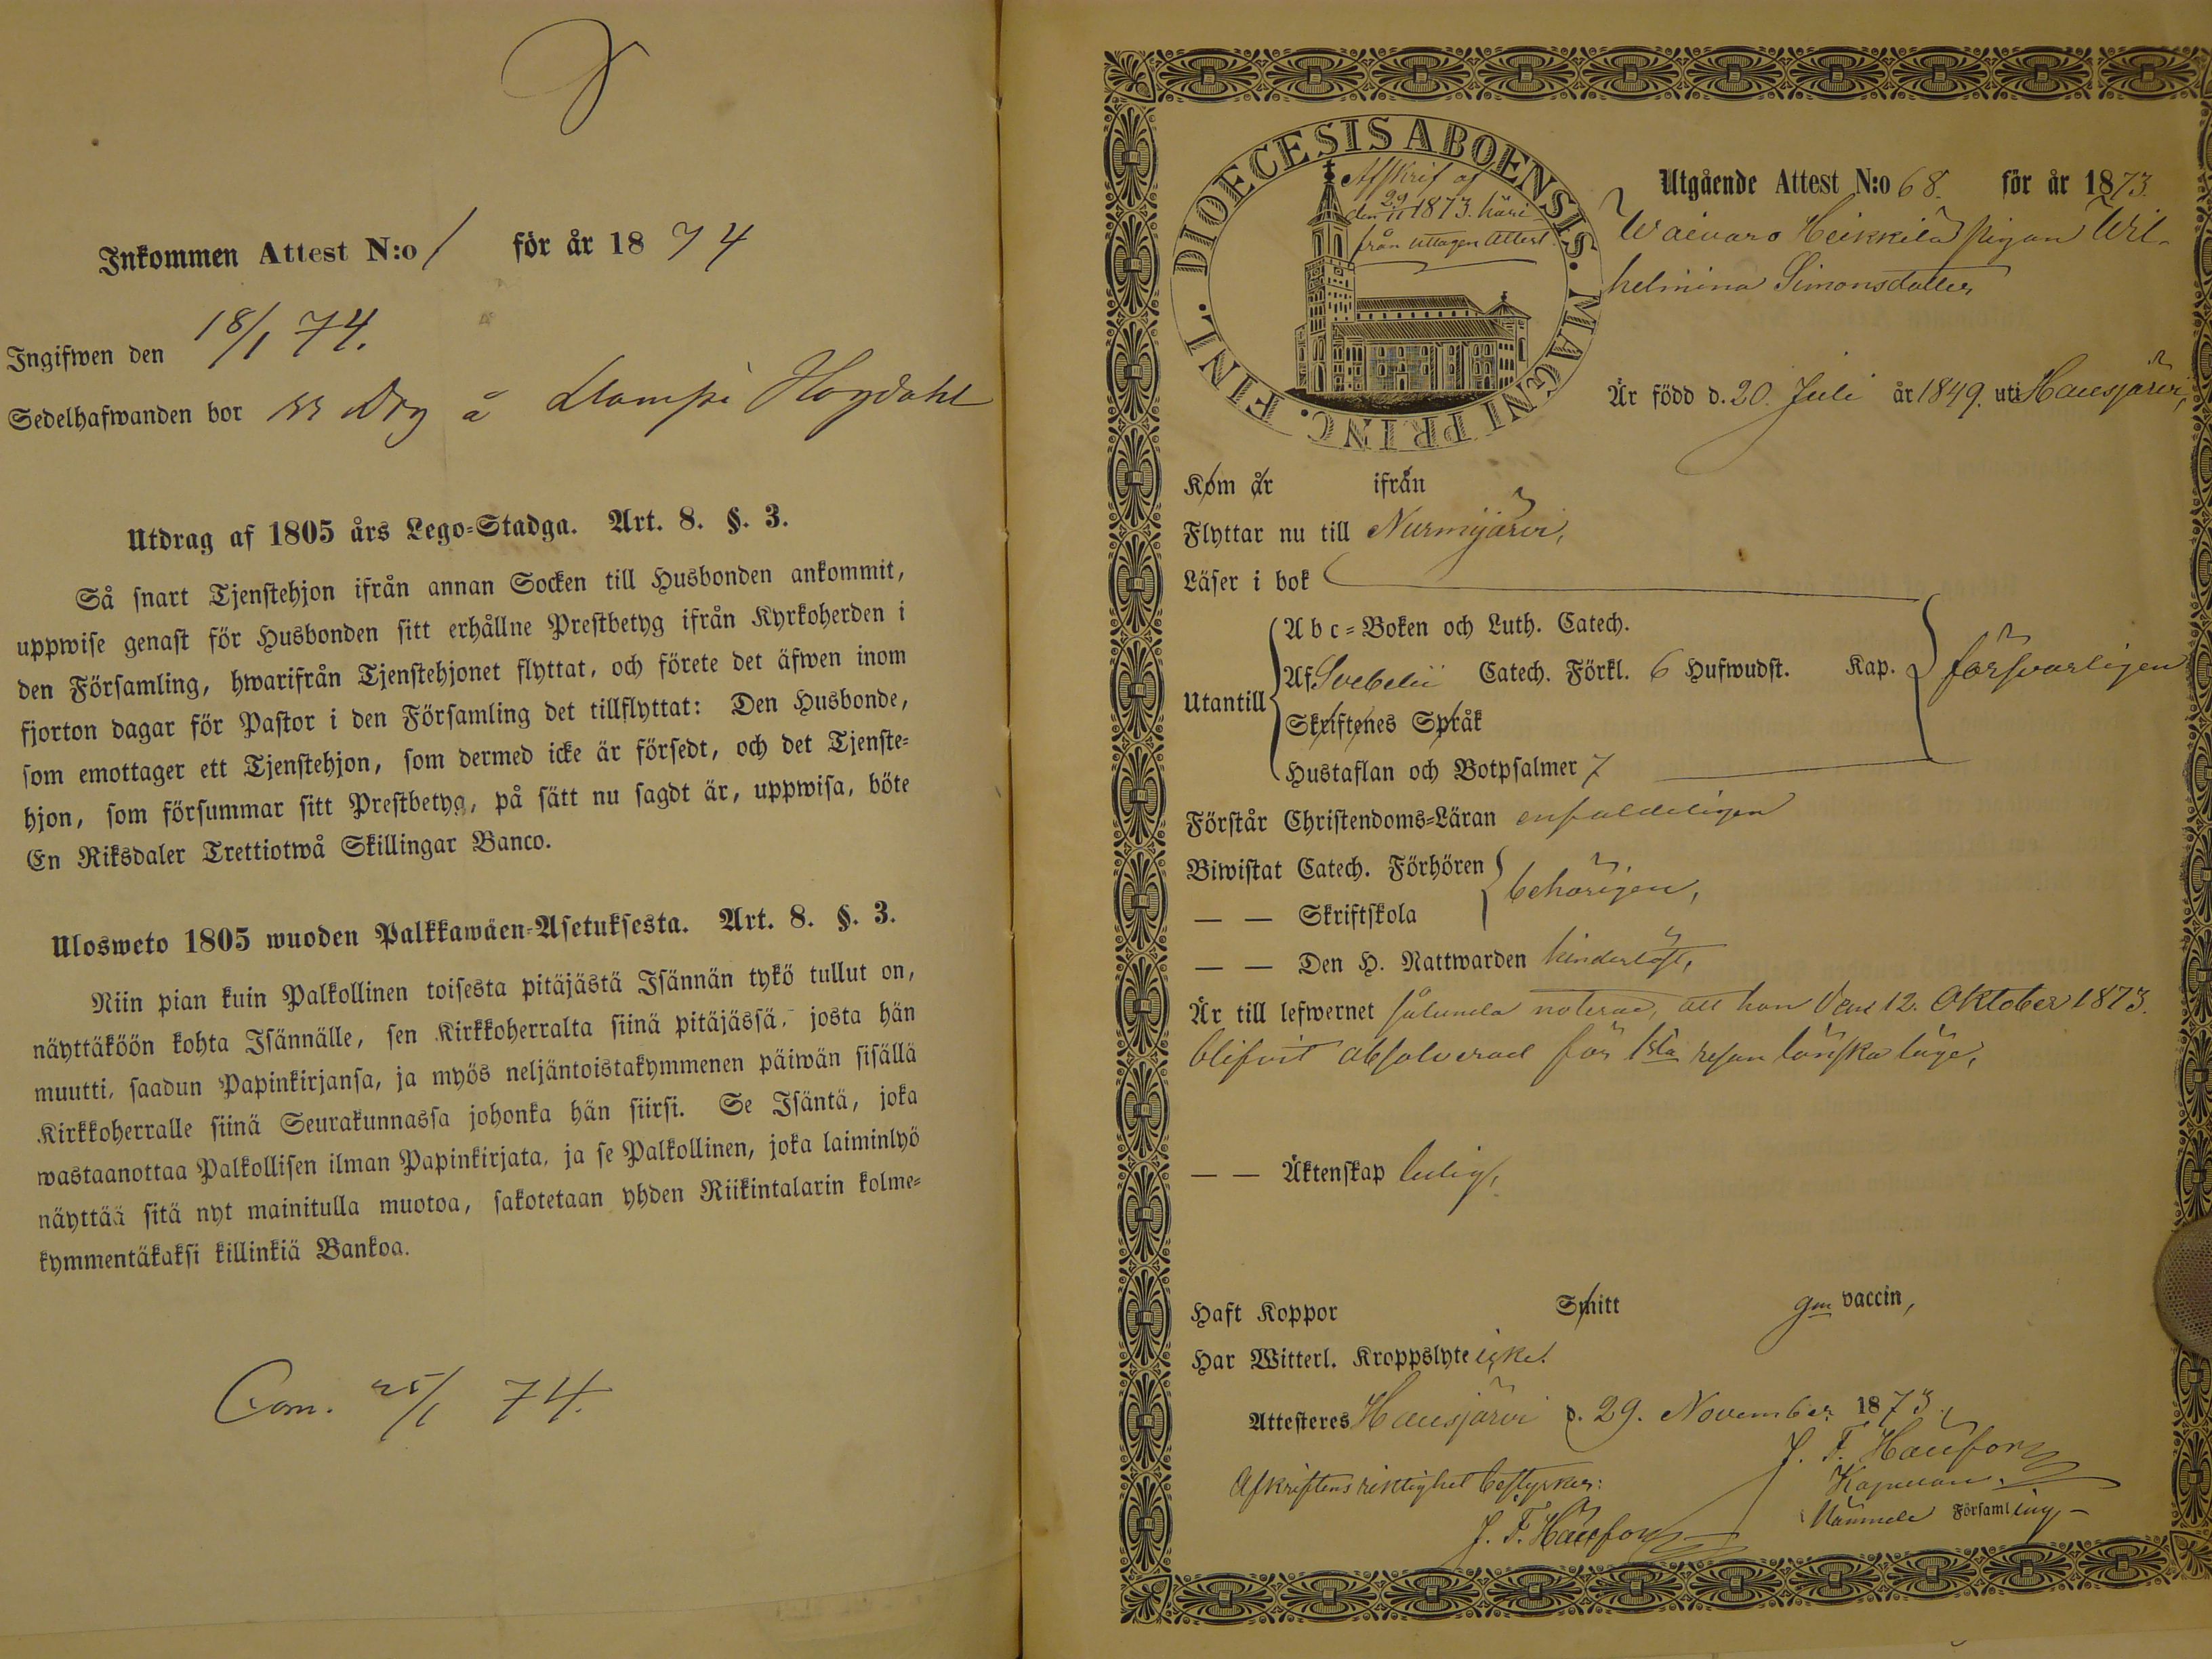 Inkommen Attest N:o 1 för år 1874
Ingifwen den 18/1 74.
Sedelhafwanden bor ss Drg å Lampi Hogdahl
Utdrag af 1805 års Lego-Stadga. Art. 8. §. 3.
Så snart Tjenstehjon ifrån annan Socken till Husbonden ankommit,
uppwise genast för Husbonden sitt erhållne Prestbetyg ifrån Kyrkoherden i
den Församling, hwarifrån Tjenstehjonet flyttat, och förete det äfwen inom
fjorton dagar för Pastor i den Församling det tillflyttat: Den Husbonde,
som emottager ett Tjenstehjon, som dermed icke är försedt, och det Tjenste-
hjon, som försummar sitt Prestbetyg, på sätt nu sagdt är, uppwisa, böte
En Riksdaler Trettiotwå Skillingar Banco.
Ulosweto 1805 wuoden Palkkawäen-Asetuksesta. Art. 8. §. 3.
Niin pian kuin Palkollinen toisesta pitäjästä Isännän tykö tullut on,
näyttäköön kohta Isännälle, sen Kirkkoherralta siinä pitäjässä, josta hän
muutti, saadun Papinkirjansa, ja myös neljäntoistakymmenen päiwän sisällä
Kirkkoherralle siinä Seurakunnassa johonka hän siirsi. Se Isäntä, joka
wastaanottaa Palkollisen ilman Papinkirjata, ja se Palkollinen, joka laiminlyö
näyttää sitä nyt mainitulla muotoa, sakotetaan yhden Riikintalarin kolme-
kymmentäkaksi killinkiä Bankoa.
Com. 25/1 74.
DIOECESIS ABOENSIS. MAGNI PRINC. FINL.
Afskrif af
den 29/11 1873. häri-
från uttagen attest
Utgående Attest N:o 68. för år 1873.
Waivaro Heikkilä pigan Wil-
helmina Simonsdotter
Är född d. 20. Juli år 1849. uti Hausjärvi,
Kom år ifrån
Flyttar nu till Nurmijärvi,
Läser i bok
Utantill
Abc-Boken och Luth. Catech.
Af Svebelii Catech. Förkl. 6 Hufwudst. Kap.
försvarligen
Skriftenes Språk
Hustaflan och Botpsalmer 7
Förstår Christendoms-Läran enfaldeligen
Biwistat Catech. Förhören
— — Skriftskola
behörigen,
— — Den H. Nattwarden hinderlöst,
Är till lefwernet sålunda noterad, att hon den 12. Oktober 1873.
blifvit absolverad för 1sta resan lönskaläge,
— — Äktenskap ledig,
Haft Koppor Smitt gm vaccin,
Har Witterl. Kroppslyte icke.
Attesteres Hausjärvi d. 29. November 1873.
J. F. Häufors
Kapellan.
Församling
Afskriftens riktighet bestyrker:
J. F. Häufors